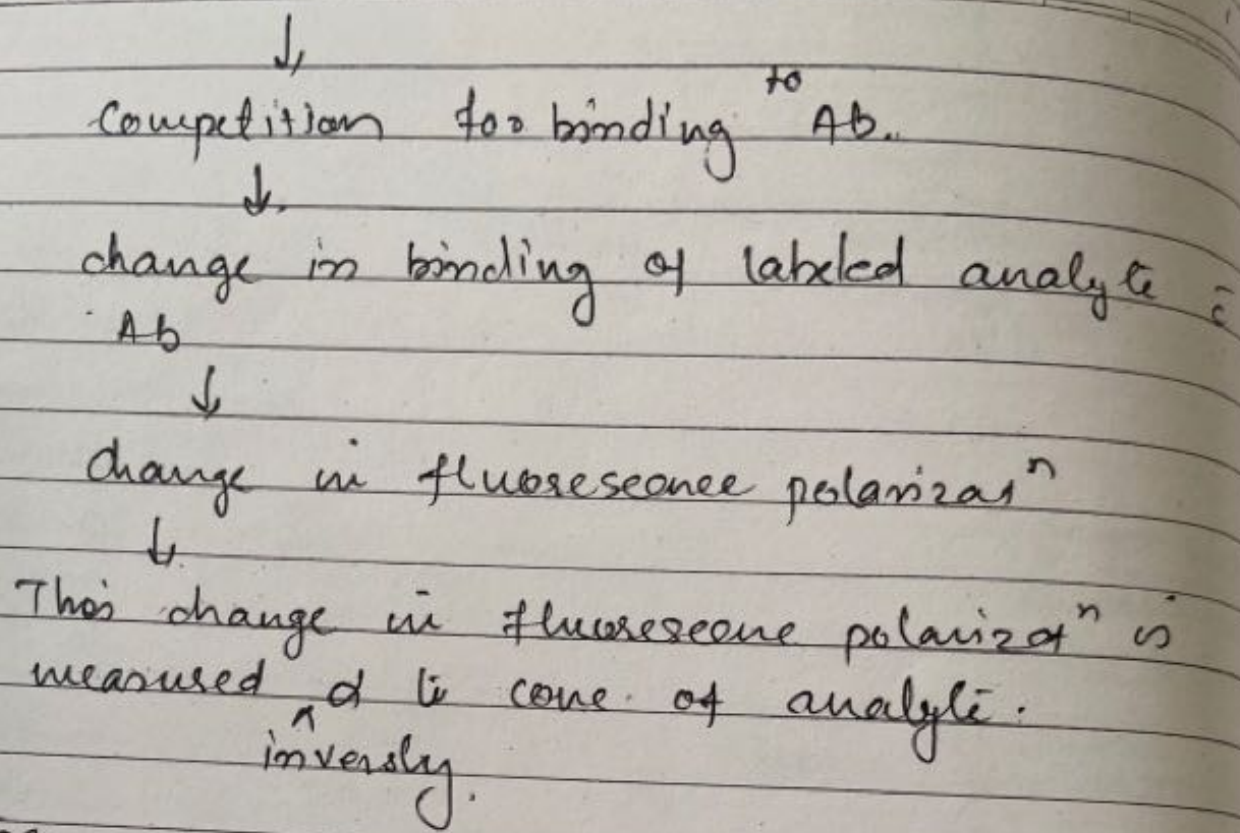 ↓
Competition for binding to Ab.
↓
change in binding of labeled analyte c̄
Ab
↓
change in fluorescence polarizatⁿ
↓
This change in fluorescence polarizatⁿ is
measured inversly α to conc. of analyte.